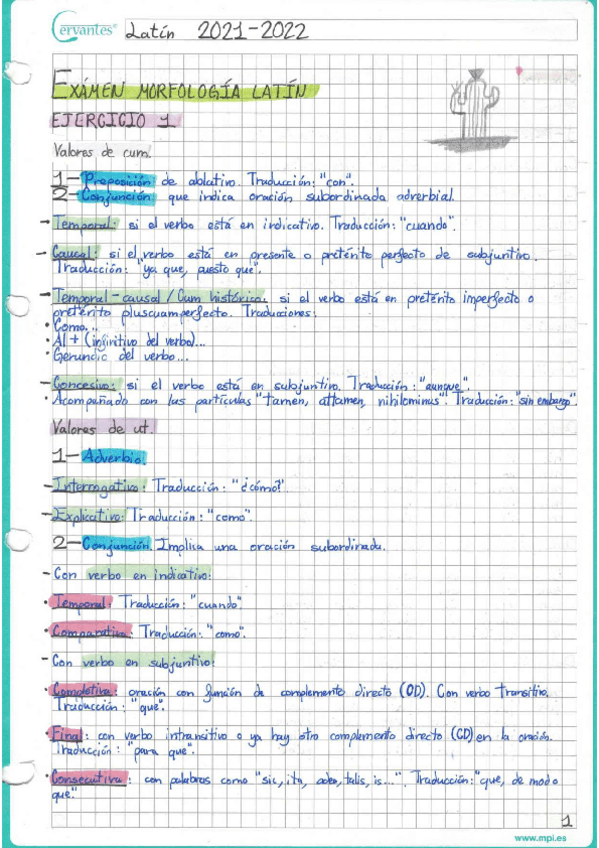 Cervantes® Latín 2021-2022
EXÁMEN MORFOLOGÍA LATÍN
EJERCICIO 1
Valores de cum.
1- Preposición de ablativo. Traducción: "con".
2- Conjunción: que indica oración subordinada adverbial.
- Temporal: si el verbo está en indicativo. Traducción: "cuando".
- Causal: si el verbo está en presente o pretérito perfecto de subjuntivo.
Traducción: "ya que, puesto que".
- Temporal-causal / Cum histórico: si el verbo está en pretérito imperfecto o
pretérito pluscuamperfecto. Traducciones:
· Como...
· Al + (infinitivo del verbo)...
· Gerundio del verbo...
- Concesivo: si el verbo está en subjuntivo. Traducción: "aunque".
· Acompañado con las partículas "tamen, attamen, nihilominus". Traducción: "sin embargo".
Valores de ut.
1- Adverbio.
- Interrogativo: Traducción: "¿cómo?".
- Explicativo: Traducción: "como".
2- Conjunción. Implica una oración subordinada.
- Con verbo en indicativo:
· Temporal: Traducción: "cuando".
· Comparativa: Traducción: "como".
- Con verbo en subjuntivo:
· Completiva: oración con función de complemento directo (OD). Con verbo transitivo.
Traducción: "que".
· Final: con verbo intransitivo o ya hay otro complemento directo (CD) en la oración.
Traducción: "para que".
· Consecutiva: con palabras como "sic, ita, adeo, talis, is...". Traducción: "que, de modo
que".
1
www.mpi.es